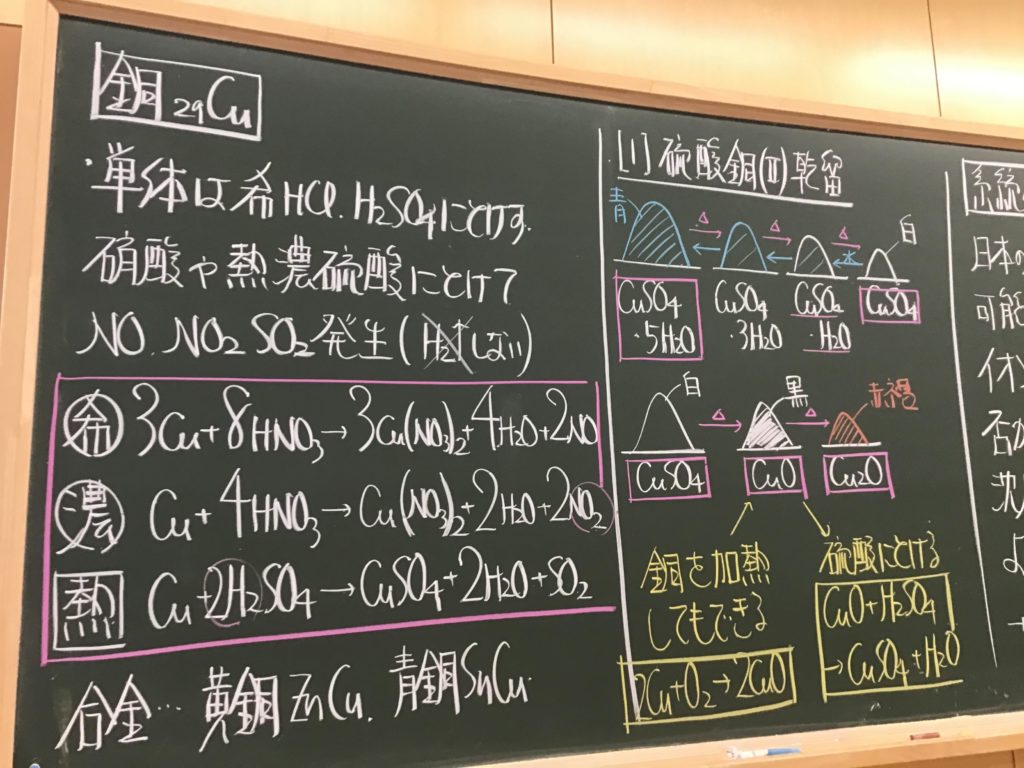 銅 29Cu
・単体は希HCl、H2SO4にとけず、
硝酸や熱濃硫酸にとけて
NO、NO2 SO2発生(H2↑しない)
希 3Cu+8HNO3→3Cu(NO3)2+4H2O+2NO
濃 Cu+4HNO3→Cu(NO3)2+2H2O+2NO2
熱 Cu+2H2SO4→CuSO4+2H2O+SO2
合金… 黄銅ZnCu、青銅SnCu
[1]硫酸銅(Ⅱ)乾留
青 △ △ △ 白
水
CuSO4・5H2O
CuSO4・3H2O
CuSO4・H2O
CuSO4
白 △ 黒 △ 赤褐
CuSO4 CuO Cu2O
銅を加熱
してもできる
2Cu+O2→2CuO
硫酸にとける
CuO+H2SO4
→CuSO4+H2O
系統
日本の
可能
イオン
否か
沈
よ